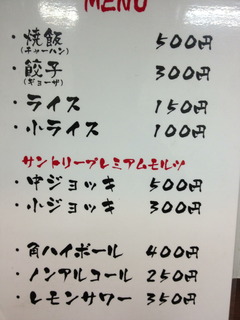 MENU
・焼飯 500円
(チャーハン)
・餃子 300円
(ギョーザ)
・ライス 150円
・小ライス 100円
サントリープレミアムモルツ
・中ジョッキ 500円
・小ジョッキ 300円
・角ハイボール 400円
・ノンアルコール 250円
・レモンサワー 350円